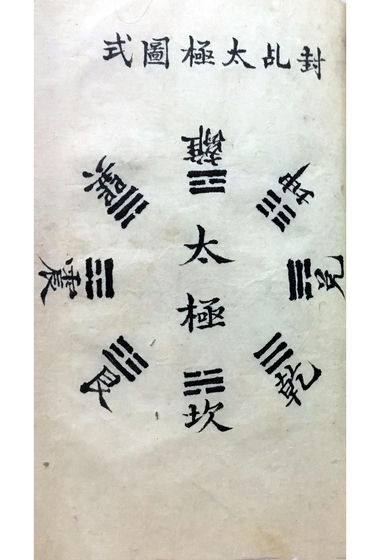 封乩太極圖式
離
坤
兌
乾
坎
艮
震
巽
太極